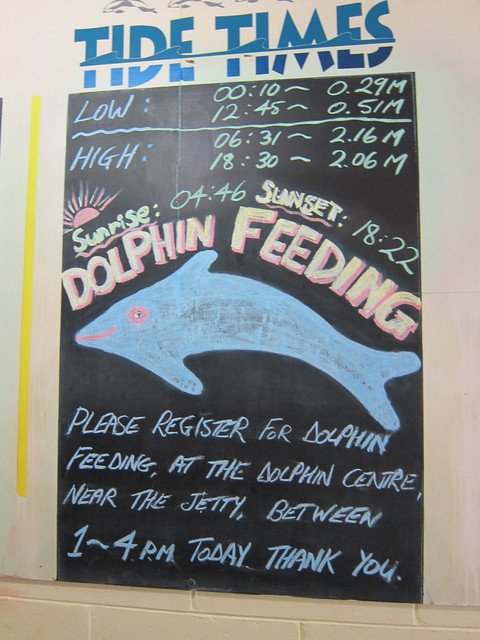 TIDE TIMES
LOW: 00:10 ~ 0.29M
12:45 ~ 0.51M
HIGH: 06:31 ~ 2.16M
18:30 ~ 2.06M
Sunrise: 04:46 SUNSET: 18:22
DOLPHIN FEEDING
PLEASE REGISTER FOR DOLPHIN
FEEDING, AT THE DOLPHIN CENTRE,
NEAR THE JETTY, BETWEEN
1~4 P.M TODAY THANK YOU.